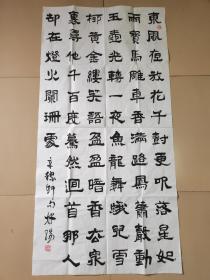 東風夜放花千樹更吹落星如
雨寶馬雕車香滿路鳳簫聲動
玉壺光轉一夜魚龍舞蛾兒雪
柳黃金縷笑語盈盈暗香去眾
裏尋他千百度驀然迴首那人
却在燈火闌珊處